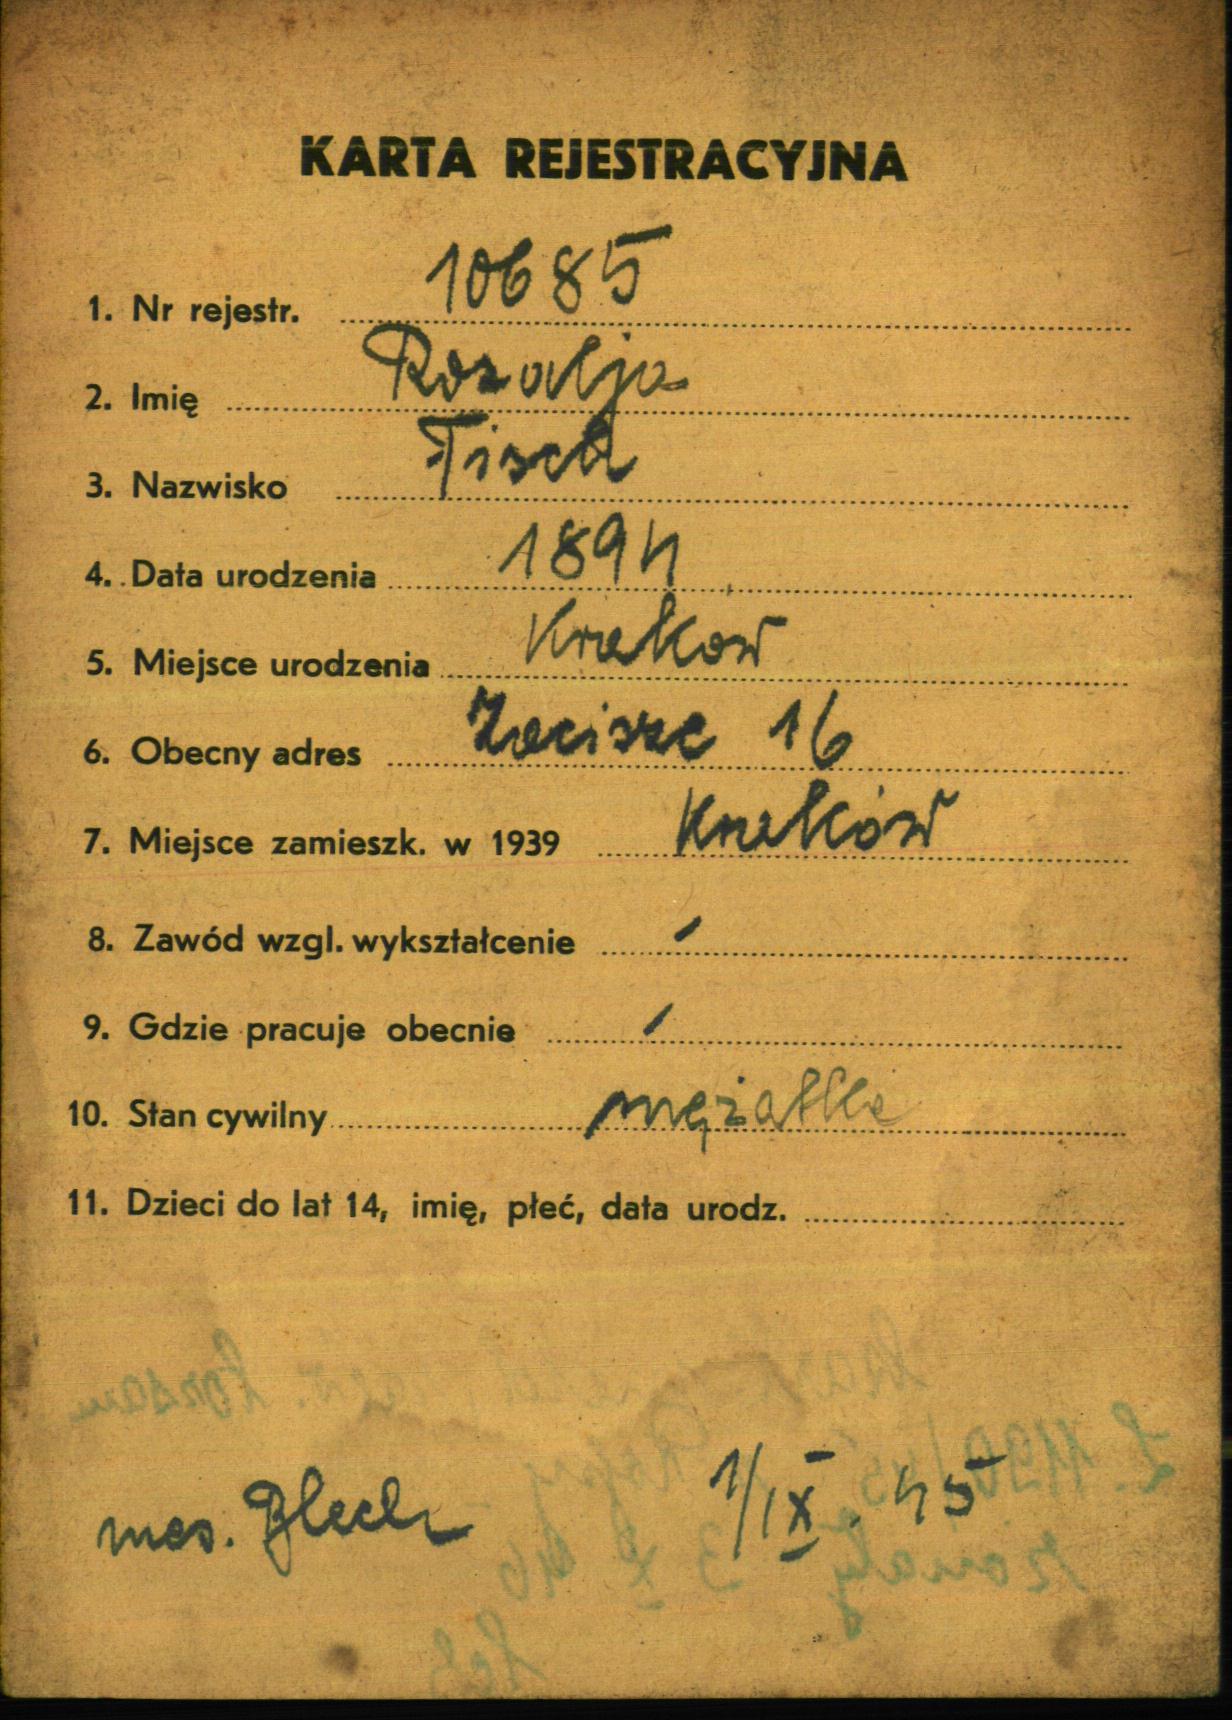 KARTA REJESTRACYJNA
1. Nr rejestr. 10685
2. Imię Rozalja
3. Nazwisko Tisch
4. Data urodzenia 1894
5. Miejsce urodzenia Krakow
6. Obecny adres Zacisze 16
7. Miejsce zamieszk. w 1939 Kraków
8. Zawód wzgl. wykształcenie -
9. Gdzie pracuje obecnie -
10. Stan cywilny mężatka
11. Dzieci do lat 14, imię, płeć, data urodz.
Blech 1/IX. 45